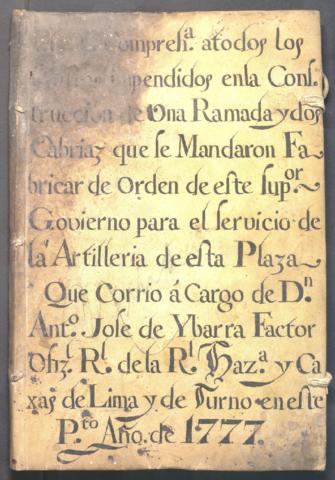 compreh.ª atodos los
impendidos enla Conſ
truccion de Vna Ramada y dos
Cabriaz que ſe Mandaron Fa
bricar de Orden de eſte ſup.ᵒʳ
Govierno para el ſervicio de
la Artilleria de eſta Plaza
Que Corrio á Cargo de D.ⁿ
Ant.º Joſe de Ybarra Factor
Ofiz.ˡ R.ˡ de la R.ˡ Haz.ª y Ca
xas de Lima y de Turno en eſte
P.ᵗᵒ Año. de 1777.